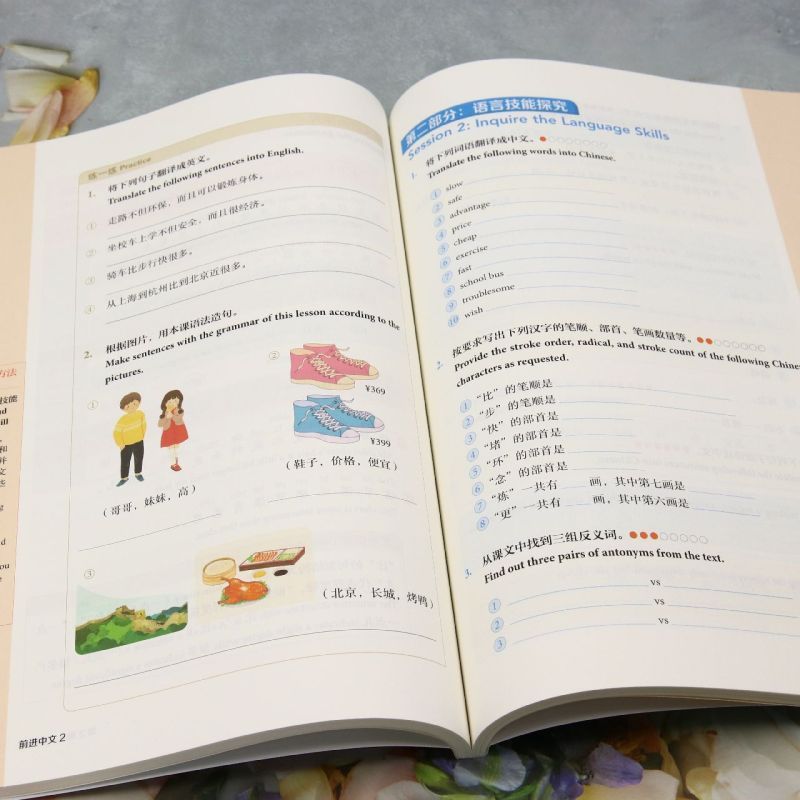 练一练 Practice
1. 将下列句子翻译成英文。
Translate the following sentences into English.
① 走路不但环保，而且可以锻炼身体。
② 坐校车上学不但安全，而且很经济。
③ 骑车比步行快很多。
④ 从上海到杭州比到北京近很多。
2. 根据图片，用本课语法造句。
Make sentences with the grammar of this lesson according to the
pictures.
①
（哥哥，妹妹，高）
②
¥369
¥399
（鞋子，价格，便宜）
③
（北京，长城，烤鸭）
前进中文 2
第二部分：语言技能探究
Session 2: Inquire the Language Skills
1. 将下列词语翻译成中文。
Translate the following words into Chinese.
① slow
② safe
③ advantage
④ price
⑤ cheap
⑥ exercise
⑦ fast
⑧ school bus
⑨ troublesome
⑩ wish
2. 按要求写出下列汉字的笔顺、部首、笔画数量等。
Provide the stroke order, radical, and stroke count of the following Chinese
characters as requested.
① “比”的笔顺是
② “步”的笔顺是
③ “快”的部首是
④ “堵”的部首是
⑤ “环”的部首是
⑥ “念”的部首是
⑦ “炼”一共有 画，其中第七画是
⑧ “更”一共有 画，其中第六画是
3. 从课文中找到三组反义词。
Find out three pairs of antonyms from the text.
① vs
② vs
③ vs